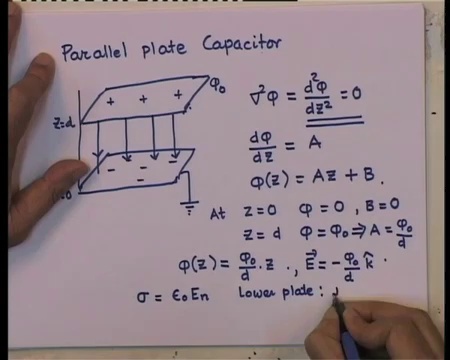 Parallel plate Capacitor
+ + +
φ₀
z=d
- - - -
=0
∇²φ = d²φ/dz² = 0
dφ/dz = A
φ(z) = Az + B.
At z=0 φ=0, B=0
z=d φ=φ₀ ⇒ A = φ₀/d
φ(z) = φ₀/d . z ., E⃗ = -φ₀/d k̂ .
σ = ϵ₀En Lower plate :